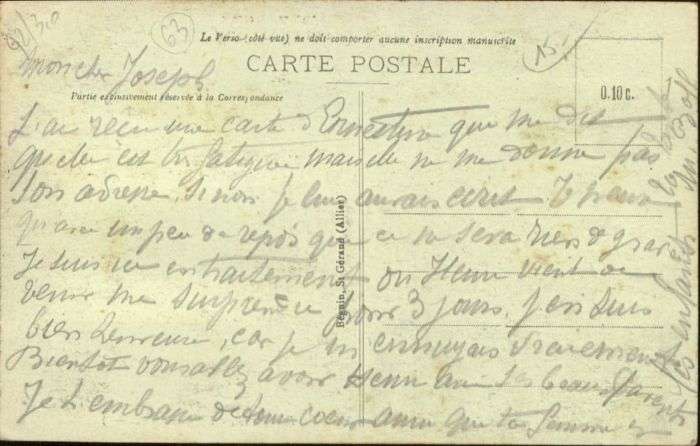 92/30
63
15
Le Verso (côté vue) ne doit comporter aucune inscription manuscrite
CARTE POSTALE
Partie exclusivement réservée à la Correspondance
0.10 c.
Béguin, St Gérand (Allier)
Mon cher Joseph
J'ai reçu une carte d'Ernestine que me dit
qu'elle est très fatiguée mais elle ne me donne pas
son adresse, sinon je leur aurais écrit
qu'avec un peu de repos que ce ne sera rien de grave
Je suis ici en traitement ou Henri vient de
venir me surprendre pour 3 jours, j'en suis
bien heureuse, car je m'ennuyais vraiment
Bientôt vous allez avoir Henri avec ses beaux parents
Je t'embrasse de tout coeur ainsi que ta femme et
les enfants